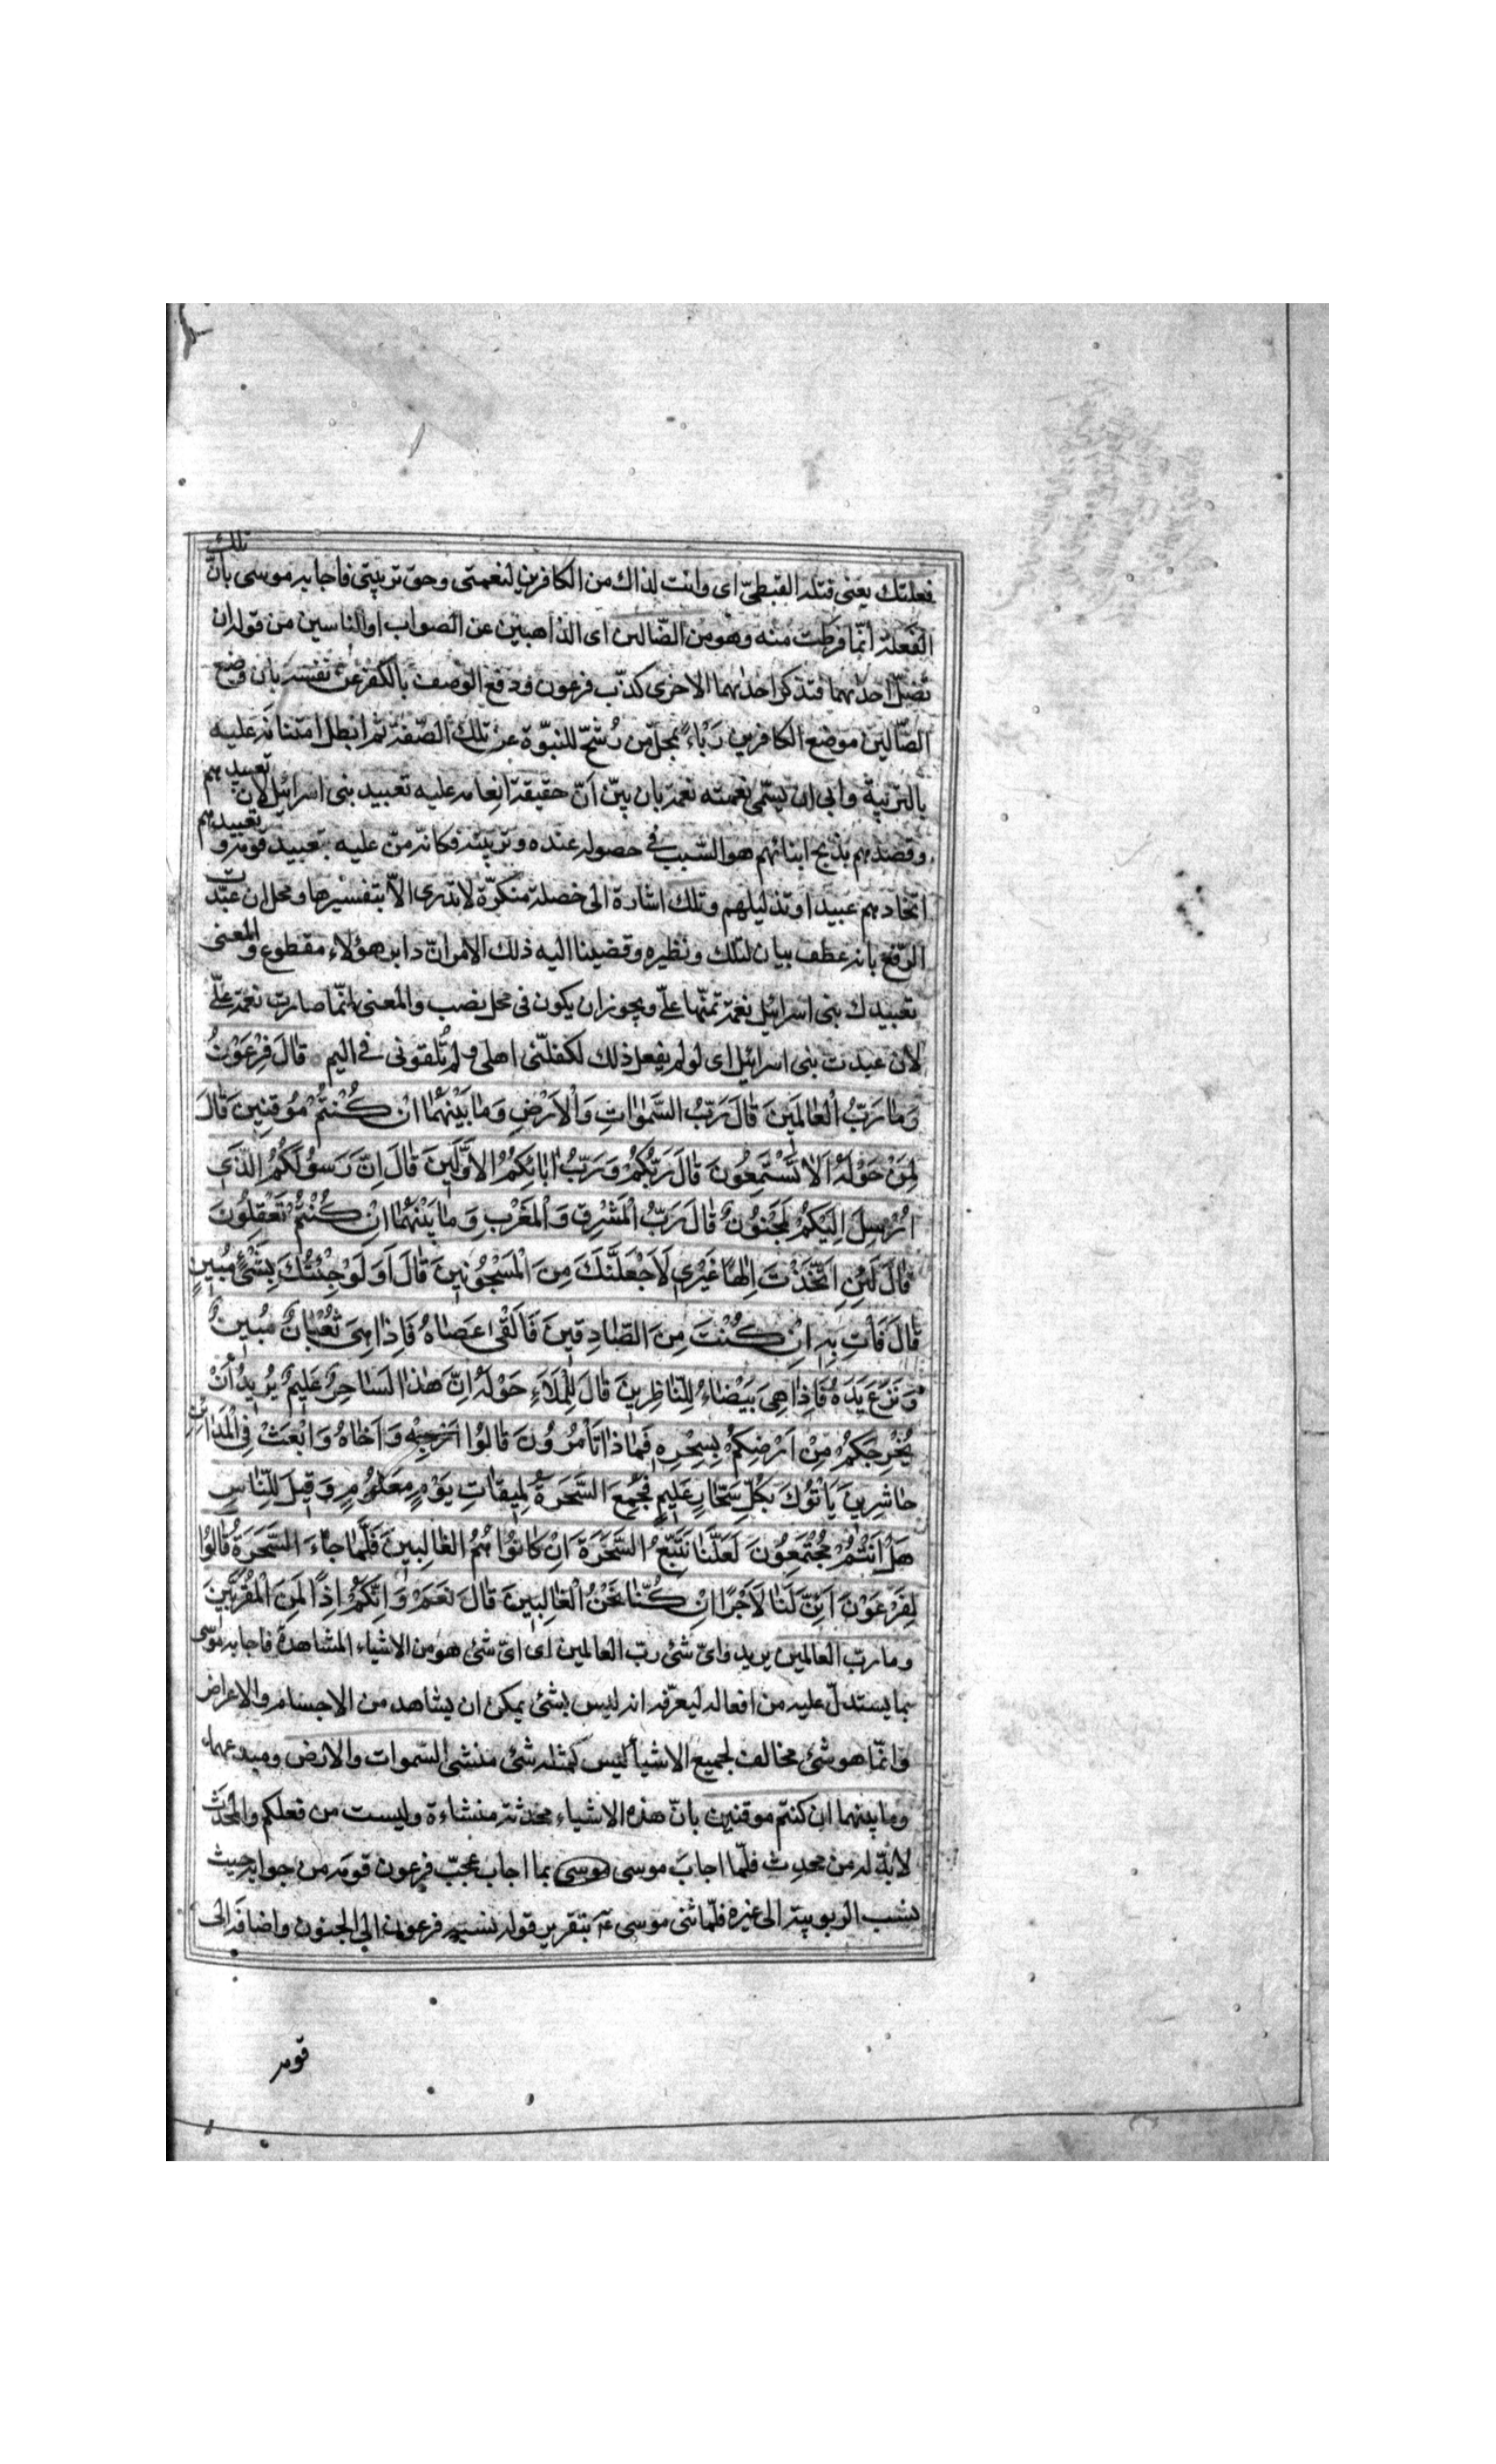 فعلتك يعنى قتله القبطىّ اى وانت لذاك من الكافرين لنعمتى وحق تربيتى فاجابه موسى بانّ تلك
الفعلة انّما فرطت منه وهو من الضّالين اى الذاهبين عن الصواب او الناسين من قوله ان
تضلّ احديهما فتذكر احديهما الاخرى كذّب فرعون ودفع الوصف بالكفر عن نفسه بان وضع
الضّالين موضع الكافرين رَبْاءً بمحلّ من رُشّح للنبوّة عن تلك الصّفة ثم ابطل امتنانه عليه
بالتربية وابى ان يسمّى نعمته نعمة بان بيّن انّ حقيقة انعامه عليه تعبيد بنى اسرائيل لان تعبيدهم
وقصدهم بذبح ابنائهم هو السّبب فى حصوله عنده وتربيته فكانه منّ عليه بتعبيد قومه و تعبيدهم
اتخاذهم عبيدا وتذليلهم وتلك اشارة الى خصلة منكرة لا تدرى الّا بتفسيرها ومحل ان عبّدت
الرّفع بانه عطف بيان لتلك ونظيره وقضينا اليه ذلك الامر انّ دابر هؤلاء مقطوع والمعنى
تعبيدك بنى اسرائيل نعمة تمنّها علىّ ويجوز ان يكون فى محل نصب والمعنى انّما صارت نعمة علىّ
لان عبدت بنى اسرائيل اى لو لم يفعل ذلك لكفلّنى اهلى ولم تُلقونى فى اليم قالَ فِرْعَوْنُ
وَمَا رَبُّ الْعَالَمِينَ قَالَ رَبُّ السَّمٰوَاتِ وَالْاَرْضِ وَمَا بَيْنَهُمَا اِنْ كُنْتُمْ مُوقِنِينَ قَالَ
لِمَنْ حَوْلَهُ اَلَا تَسْتَمِعُونَ قَالَ رَبُّكُمْ وَرَبُّ اٰبَائِكُمُ الْاَوَّلِينَ قَالَ اِنَّ رَسُولَكُمُ الَّذِى
اُرْسِلَ اِلَيْكُمْ لَمَجْنُونٌ قَالَ رَبُّ الْمَشْرِقِ وَالْمَغْرِبِ وَمَا بَيْنَهُمَا اِنْ كُنْتُمْ تَعْقِلُونَ
قَالَ لَئِنِ اتَّخَذْتَ اِلٰهًا غَيْرِى لَاَجْعَلَنَّكَ مِنَ الْمَسْجُونِينَ قَالَ اَوَلَوْ جِئْتُكَ بِشَىْءٍ مُبِينٍ
قَالَ فَأْتِ بِهِ اِنْ كُنْتَ مِنَ الصَّادِقِينَ فَاَلْقٰى عَصَاهُ فَاِذَا هِىَ ثُعْبَانٌ مُبِينٌ
وَنَزَعَ يَدَهُ فَاِذَا هِىَ بَيْضَاءُ لِلنَّاظِرِينَ قَالَ لِلْمَلَاءِ حَوْلَهُ اِنَّ هٰذَا لَسَاحِرٌ عَلِيمٌ يُرِيدُ اَنْ
يُخْرِجَكُمْ مِنْ اَرْضِكُمْ بِسِحْرِهِ فَمَاذَا تَأْمُرُونَ قَالُوا اَرْجِهْ وَاَخَاهُ وَابْعَثْ فِى الْمَدَائِنِ
حَاشِرِينَ يَأْتُوكَ بِكُلِّ سَحَّارٍ عَلِيمٍ فَجُمِعَ السَّحَرَةُ لِمِيقَاتِ يَوْمٍ مَعْلُومٍ وَقِيلَ لِلنَّاسِ
هَلْ اَنْتُمْ مُجْتَمِعُونَ لَعَلَّنَا نَتَّبِعُ السَّحَرَةَ اِنْ كَانُوا هُمُ الْغَالِبِينَ فَلَمَّا جَاءَ السَّحَرَةُ قَالُوا
لِفِرْعَوْنَ اَئِنَّ لَنَا لَاَجْرًا اِنْ كُنَّا نَحْنُ الْغَالِبِينَ قَالَ نَعَمْ وَاِنَّكُمْ اِذًا لَمِنَ الْمُقَرَّبِينَ
وما ربّ العالمين يريد واىّ شئ ربّ العالمين اى اىّ شئ هو من الاشياء المشاهدة فاجابه موسى
بما يستدلّ عليه من افعاله ليعرّفه انه ليس بشئ يمكن ان يشاهد من الاجسام والاعراض
وانّما هو شئ مخالف لجميع الاشياء ليس كمثله شئ منشى السّموات والارض ومبدعهما
وما بينهما ان كنتم موقنين بانّ هذه الاشياء محدثة منشاءة وليست من فعلكم والمحدَث
لابدّ له من محدِث فلمّا اجاب موسى موسى بما اجاب عجّب فرعون قومه من جوابه حيث
نسب الربوبية الى غيره فلمّا ثنى موسى عـ بتقرير قوله نسبه فرعون الى الجنون واضافه الى
قومه